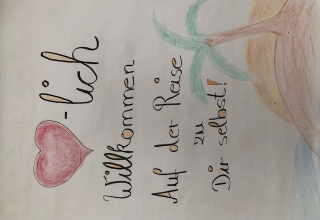 -lich
Willkommen
Auf der Reise
zu
Dir selbst!